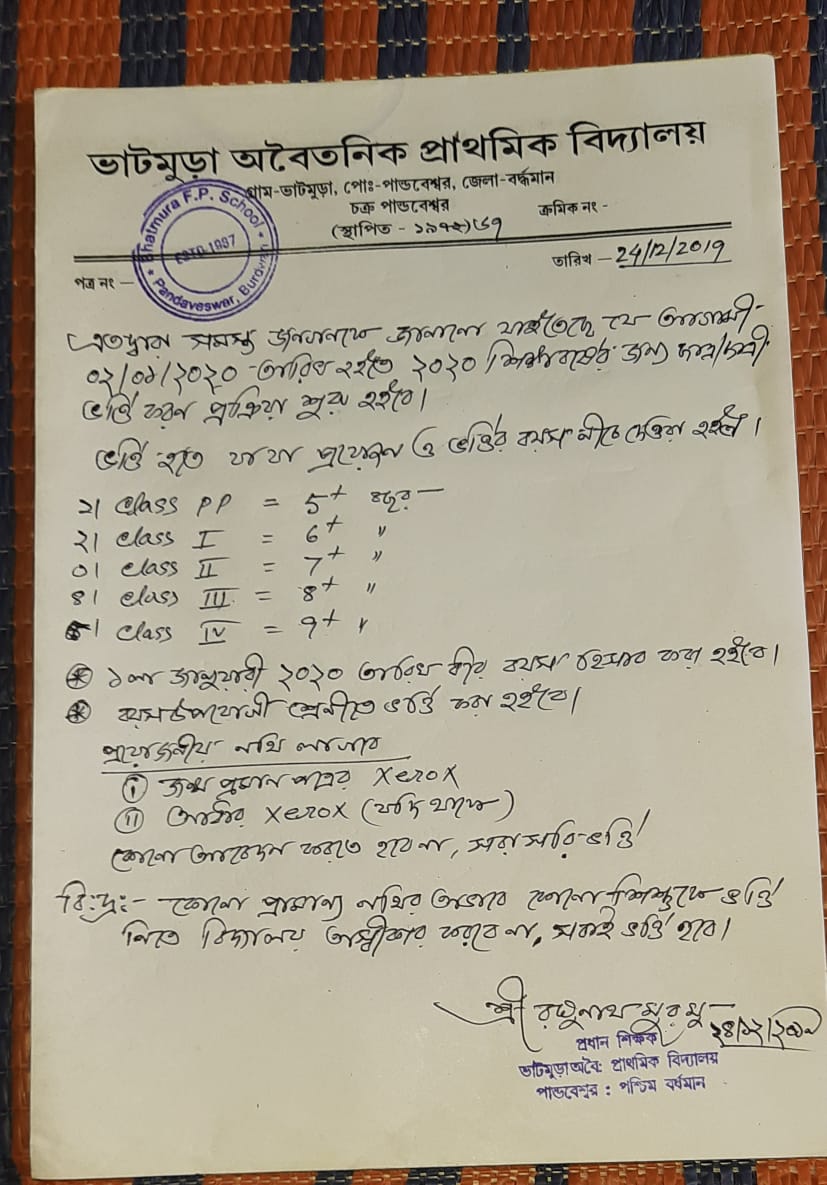 ভাটমুড়া অবৈতনিক প্রাথমিক বিদ্যালয়
গ্রাম-ভাটমুড়া, পোঃ-পান্ডবেশ্বর, জেলা-বর্দ্ধমান
চক্র পান্ডবেশ্বর
ক্রমিক নং -
(স্থাপিত -
Bhatmura F.P. School
ESTD-1967
Pandaveswar, Burdwan
পত্র নং —
তারিখ - 24/12/2019
এতদ্বারা সমস্ত জনগনকে জানানো যাইতেছে যে আগামী-
০২/০১/২০২০ তারিখ হইতে ২০২০ শিক্ষাবর্ষের জন্য ছাত্র/ছাত্রী
ভর্তি করণ প্রক্রিয়া শুরু হইবে।
ভর্তি হতে যা যা প্রয়োজন ও ভর্তির বয়স নীচে দেওয়া হইল।
১। Class PP = 5+ বছর —
২। Class I = 6+ "
৩। Class II = 7+ "
৪। Class III = 8+ "
৫। Class IV = 9+ "
১লা জানুয়ারী ২০২০ তারিখ ধরে বয়স হিসাব করা হইবে।
বয়স উপযোগী শ্রেনীতে ভর্তি করা হইবে।
প্রয়োজনীয় নথি লাগবে
(i) জন্ম প্রমান পত্রের Xerox
(ii) আধার Xerox (যদি থাকে)
কোনো আবেদন করতে হবে না, সরাসরি ভর্তি
বি:দ্র:- কোনো প্রামান্য নথির অভাবে কোনো শিশুকে ভর্তি
নিতে বিদ্যালয় অস্বীকার করবে না, সবাই ভর্তি হবে।
শ্রী রঘুনাথ মুরমু
২৪/১২/২০১৯
প্রধান শিক্ষক
ভাটমুড়া অবৈ: প্রাথমিক বিদ্যালয়
পান্ডবেশ্বর : পশ্চিম বর্ধমান